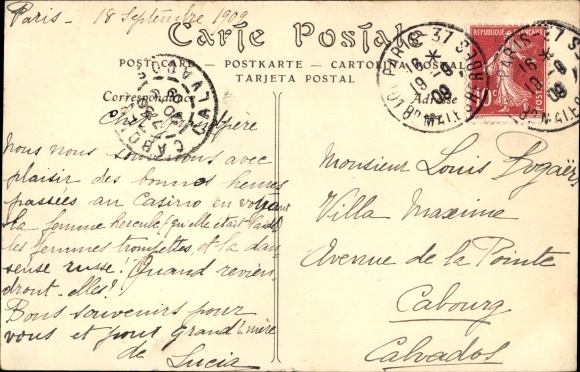 Paris - 18 Septembre 1909
Carte Postale
POSTCARD — POSTKARTE — CARTOLINA POSTALE
TARJETA POSTAL
Correspondance
Adresse
REPUBLIQUE FRANÇAISE
POSTES
10c
PARIS 37
09
CABOURG
CALVADOS
Cher
Nous nous souvenons avec
plaisir des bonnes heures
passées au Casino en voyant
la femme hercule (qu'elle était laide)
les femmes trompettes, et la dan-
seuse russe! Quand revien-
dront-elles?!
Bons souvenirs pour
vous et pour grand'mère
de Lucia
Monsieur Louis
Villa Maxime
Avenue de la Pointe
Cabourg
Calvados